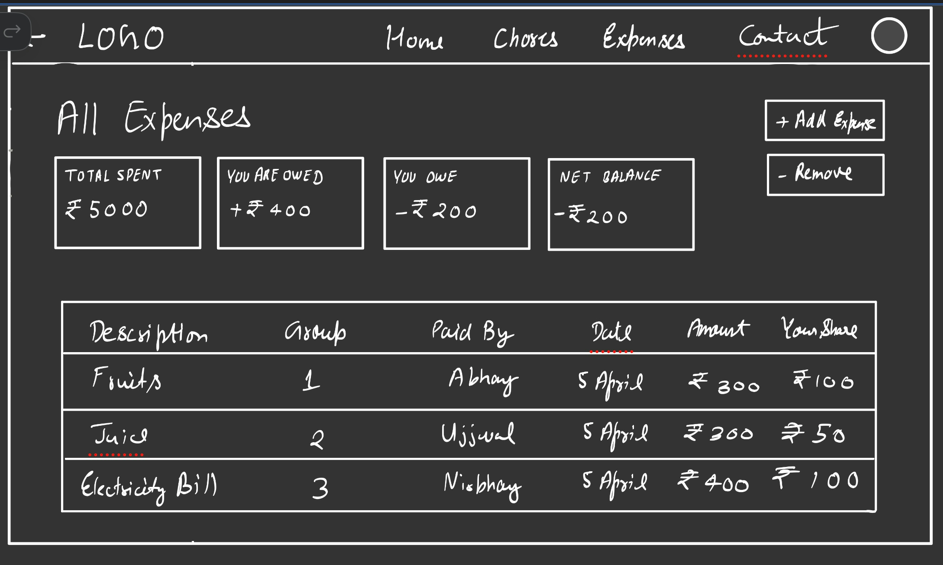 LOGO Home Chores Expenses Contact
All Expenses
+ Add Expense
- Remove
TOTAL SPENT
₹ 5000
YOU ARE OWED
+ ₹ 400
YOU OWE
- ₹ 200
NET BALANCE
- ₹ 200
Description Group Paid By Date Amount Your Share
Fruits 1 Abhay 5 April ₹ 300 ₹ 100
Juice 2 Ujjwal 5 April ₹ 300 ₹ 50
Electricity Bill 3 Nirbhay 5 April ₹ 400 ₹ 100